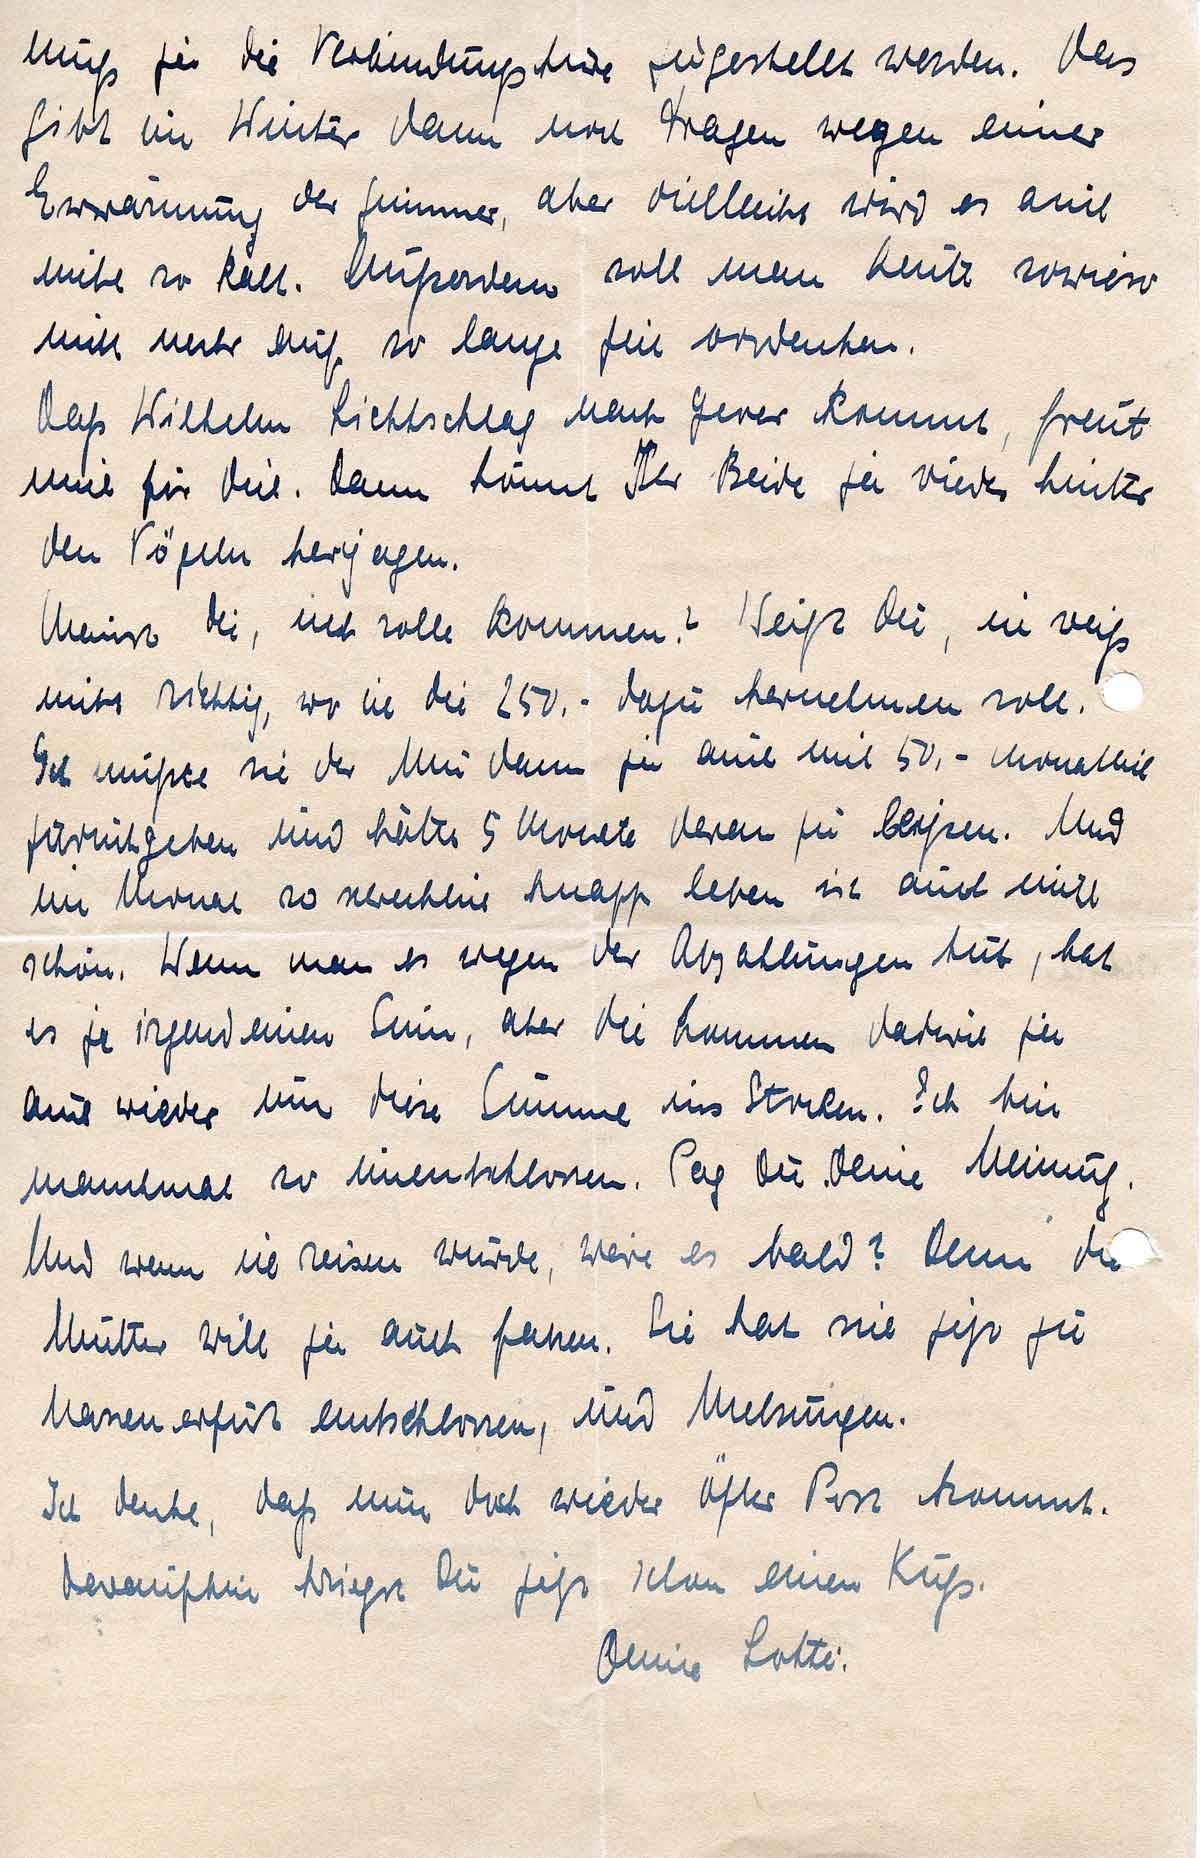 muß ja die Verbindungstüre zugestellt werden. Das
gibt im Winter dann noch Fragen wegen einer
Erwärmung der Zimmer, aber vielleicht wird es auch
nicht so kalt. Außerdem soll man heute sowieso
nicht mehr auf so lange Zeit vordenken.
Daß Wilhelm Lichtschlag nach Jever kommt, freut
mich für Dich. Dann könnt Ihr Beide ja wieder hinter
den Vögeln herjagen.
Meinst Du, ich solle kommen? Weißt Du, ich weiß
nicht richtig, wo ich die 250.- dazu hernehmen soll.
Ich müßte sie der Mu dann ja auch mit 50.- monatlich
zurückgeben und hätte 5 Monate daran zu beißen. Und
im Monat so schrecklich knapp leben ist auch nicht
schön. Wenn man es wegen der Abzahlungen tut, hat
es ja irgend einen Sinn, aber die kommen dadurch ja
auch wieder um diese Summe ins Stocken. Ich bin
manchmal so unentschlossen. Sag Du Deine Meinung.
Und wenn ich reisen würde, wäre es bald? Denn die
Mutter will ja auch fahren. Sie hat sich jetzt zu
Hasenerfurt entschlossen, und Melsungen.
Ich denke, daß nun doch wieder öfter Post kommt.
Daraufhin kriegst Du jetzt schon einen Kuß.
Deine Lotte.